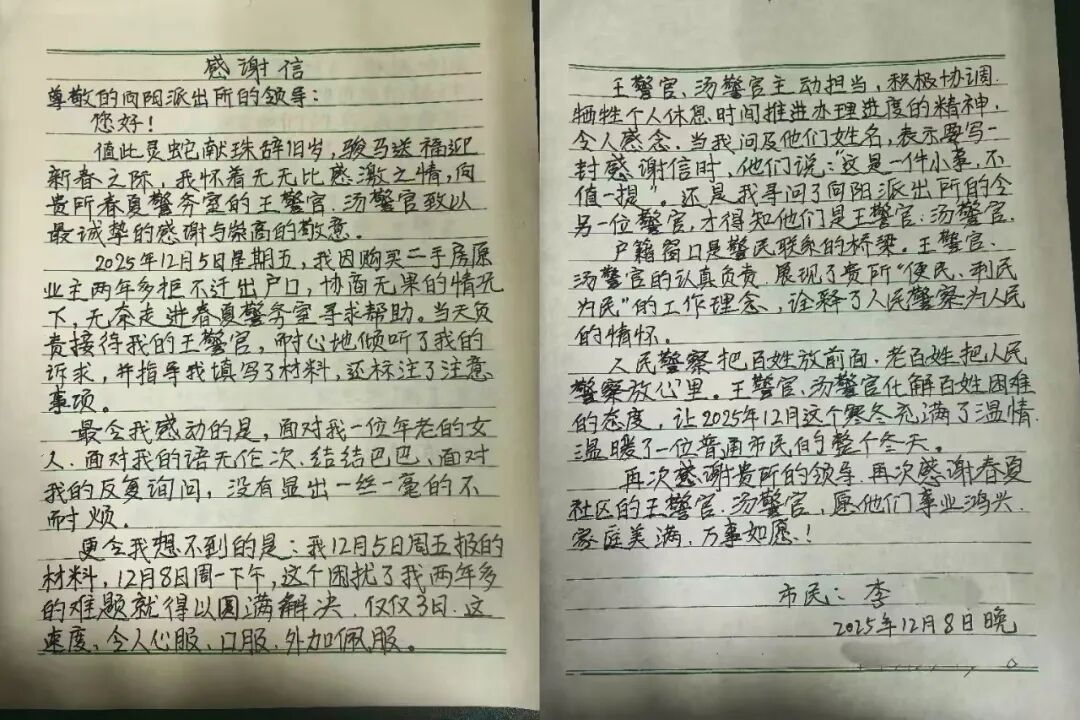 感谢信
尊敬的向阳派出所的领导：
您好！
值此灵蛇献珠辞旧岁，骏马送福迎
新春之际，我怀着无无比感激之情，向
贵所春夏警务室的王警官、汤警官致以
最诚挚的感谢与崇高的敬意。
2025年12月5日星期五，我因购买二手房原
业主两年多拒不迁出户口，协商无果的情况
下，无奈走进春夏警务室寻求帮助。当天负
责接待我的王警官，耐心地倾听了我的
诉求，并指导我填写了材料，还标注了注意
事项。
最令我感动的是，面对我一位年老的女
人、面对我的语无伦次、结结巴巴、面对
我的反复询问，没有显出一丝一毫的不
耐烦。
更令我想不到的是：我12月5日周五报的
材料，12月8日周一下午，这个困扰了我两年多
的难题就得以圆满解决，仅仅3日、这
速度、令人心服、口服、外加佩服。
王警官、汤警官主动担当，积极协调、
牺牲个人休息时间推进办理进度的精神，
令人感念。当我问及他们姓名，表示要写一
封感谢信时，他们说：“这是一件小事，不
值一提”。还是我寻问了向阳派出所的令
另一位警官，才得知他们是王警官、汤警官。
户籍窗口是警民联系的桥梁。王警官、
汤警官的认真负责、展现了贵所“便民、利民
为民”的工作理念，诠释了人民警察为人民
的情怀。
人民警察把百姓放前面、老百姓把人民
警察放心里。王警官、汤警官化解百姓困难
的态度，让2025年12月这个寒冬充满了温情、
温暖了一位普通市民的整个冬天。
再次感谢贵所的领导、再次感谢春夏
社区的王警官、汤警官，愿他们事业鸿兴、
家庭美满、万事如愿！
市民：李
2025年12月8日晚